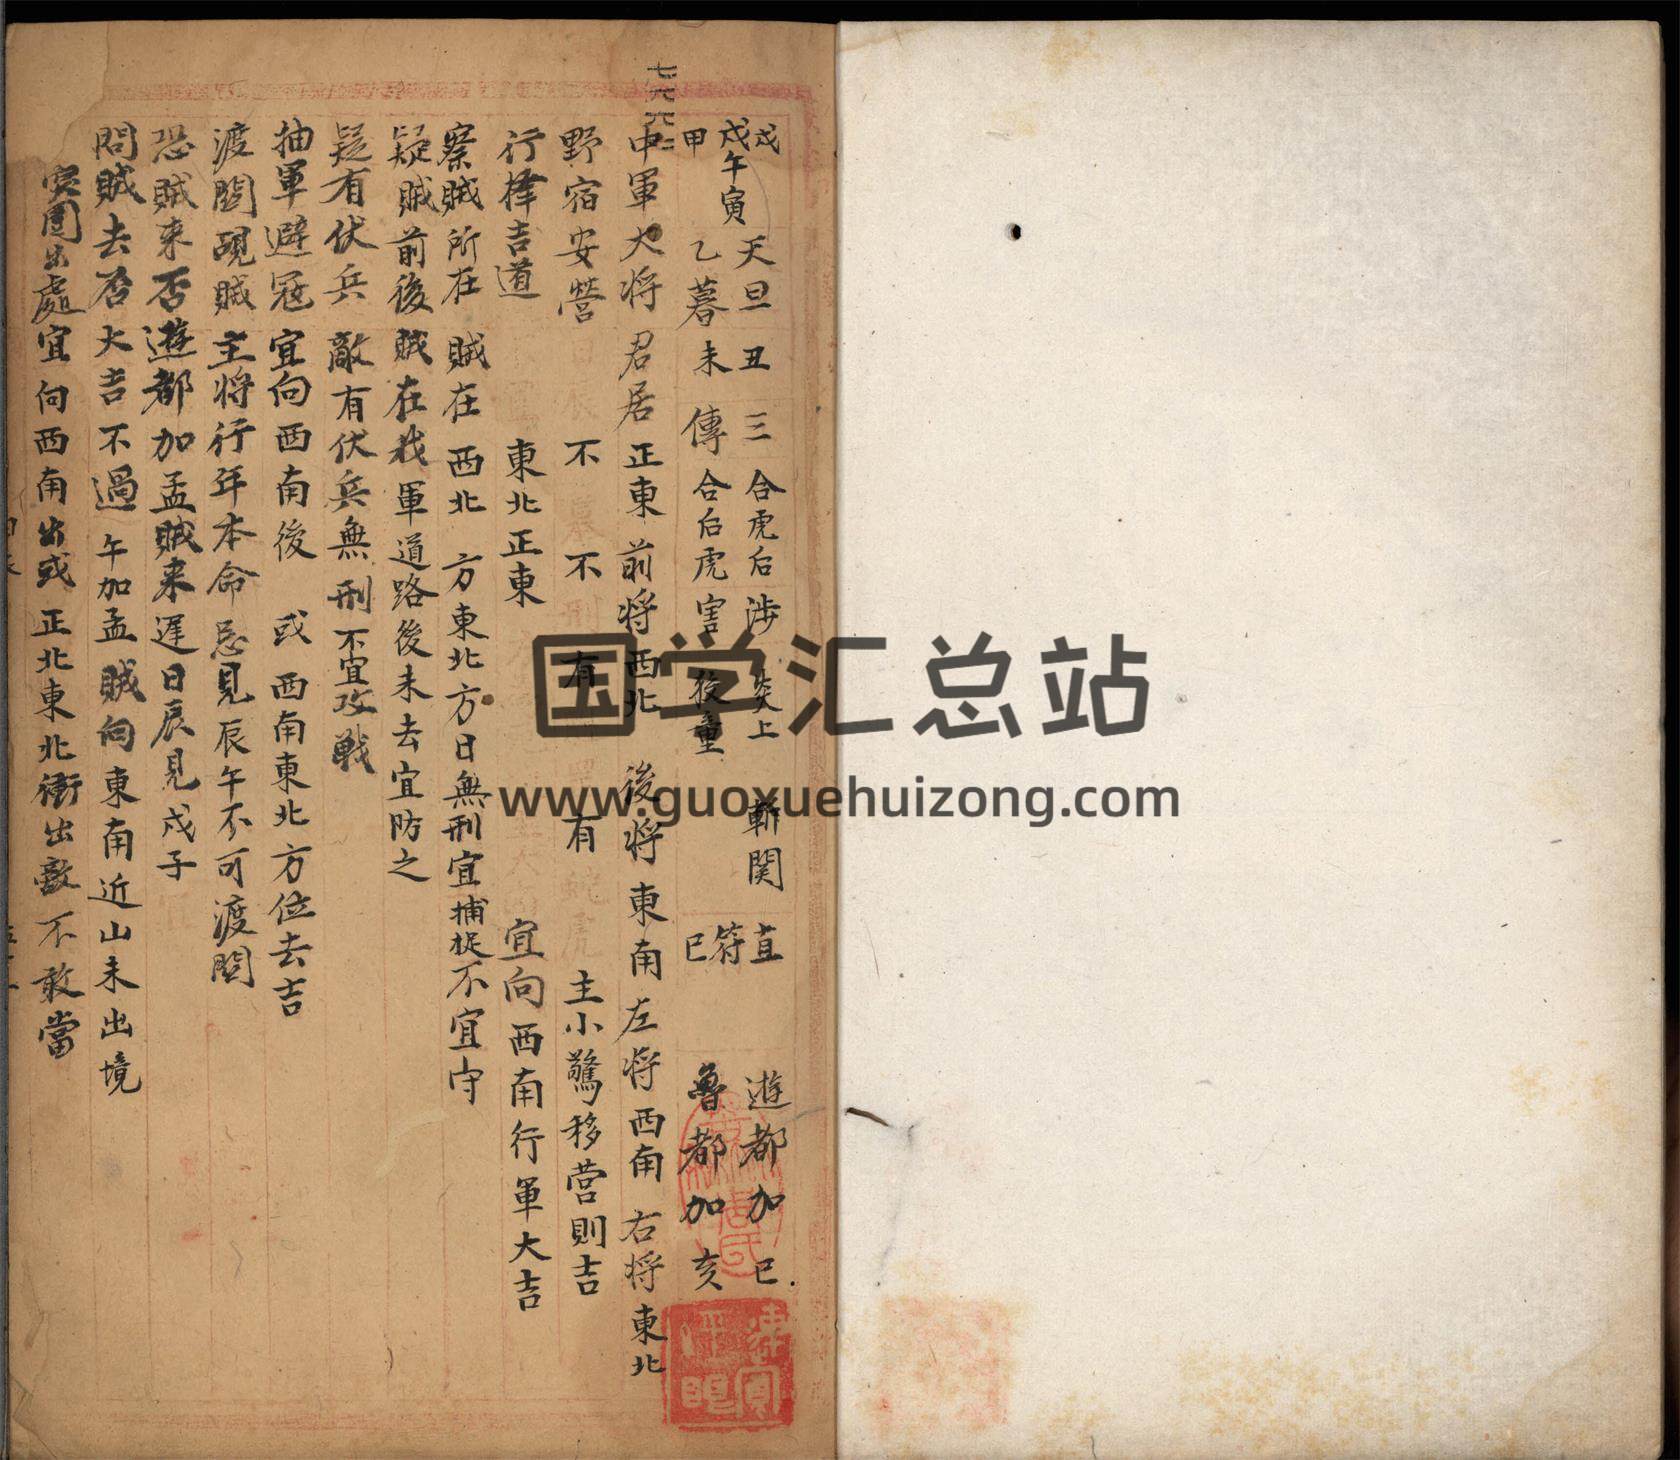 戊 天旦丑 三 合虎后 涉 炎上 斬関 直 遊都加巳
戊午寅 符
甲 乙暮未 傳 合后虎 害 後重 巳 魯都加亥
中軍大将君居正東前将西北後将東南左将西南右将東北
野宿安營 不 不 有 有 主小驚移营則吉
行擇吉道 東北正東 宜向西南行軍大吉
察賊所在 賊在西北方東北方日無刑宜捕捉不宜守
疑賊前後賊在我軍道路後未去宜防之
疑有伏兵 敵有伏兵無刑不宜攻戦
抽軍避冦宜向西南後 或西南東北方位去吉
渡関覘賊主将行年本命忌見辰午不可渡関
恐賊来否遊都加孟賊来遲日辰見戌子
問賊去否大吉不過午加孟賊向東南近山未出境
突圍出處宜向西南出或正北東北衝出敵不敢當
国学汇总站
www.guoxuehuizong.com